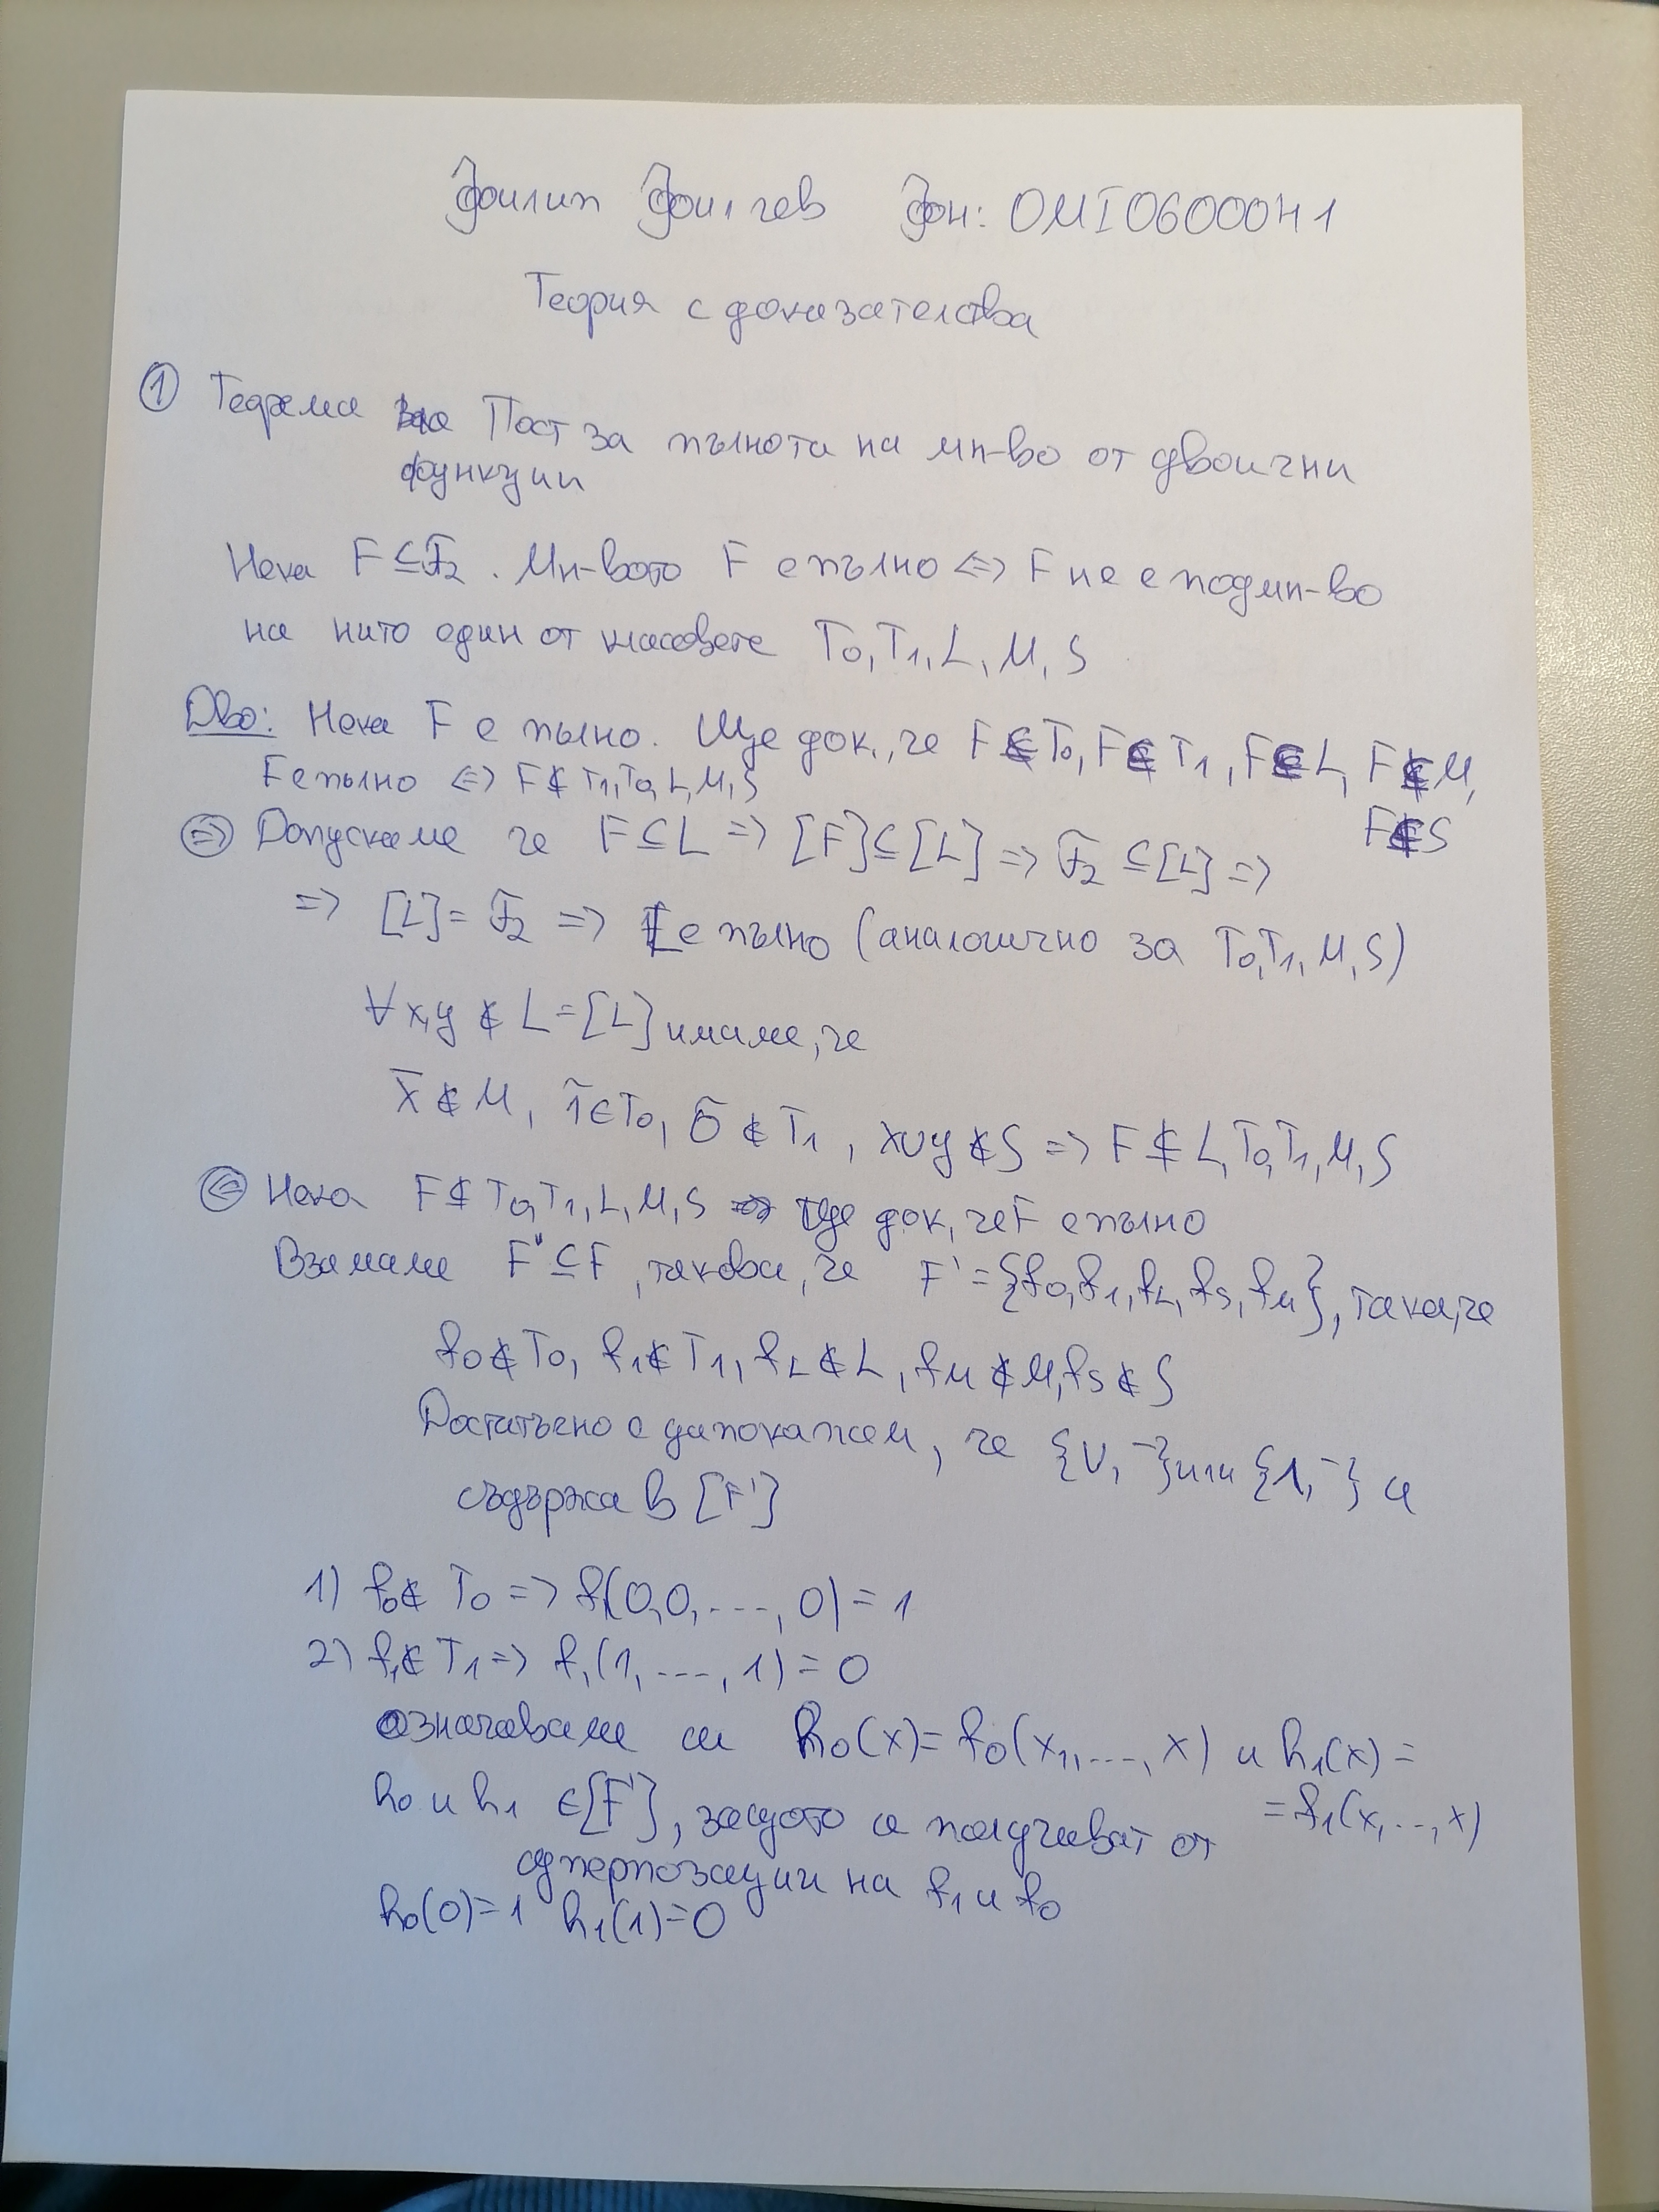 Филип Филчев Фн: 0MI0600041
Теория с доказателства
① Теорема на Пост за пълнота на мн-во от двоични
функции
Нека F ⊆ F₂. Мн-вото F е пълно <=> F не е подмн-во
на нито един от класовете T₀, T₁, L, M, S
Дво: Нека F е пълно. Ще док., че F ⊄ T₀, F ⊄ T₁, F ⊄ L, F ⊄ M,
F ⊄ S
F е пълно <=> F ⊄ T₁, T₀, L, M, S
(=>) Допускаме че F ⊆ L => [F] ⊆ [L] => F₂ ⊆ [L] =>
=> [L] = F₂ => L е пълно (аналогично за T₀, T₁, M, S)
∀ x,y ∉ L = [L] имаме, че
x̄ ∉ M, 1̃ ∈ T₀, 0̃ ∉ T₁, x∪y ∉ S => F ⊄ L, T₀, T₁, M, S
(<=) Нека F ⊄ T₀, T₁, L, M, S Ще док, че F е пълно
Взимаме F' ⊆ F, такова, че F' = {f₀, f₁, f_L, f_S, f_M}, така, че
f₀ ∉ T₀, f₁ ∉ T₁, f_L ∉ L, f_M ∉ M, f_S ∉ S
Достатъчно е да покажем, че {∪, ¯} или {∧, ¯} се
съдържа в [F']
1) f₀ ∉ T₀ => f(0,0,...,0) = 1
2) f₁ ∉ T₁ => f₁(1,...,1) = 0
означаваме си h₀(x) = f₀(x₁,...,x) и h₁(x) =
= f₁(x,...,x)
h₀ и h₁ ∈ [F'], защото се получават от
суперпозации на f₁ и f₀
h₀(0) = 1 h₁(1) = 0